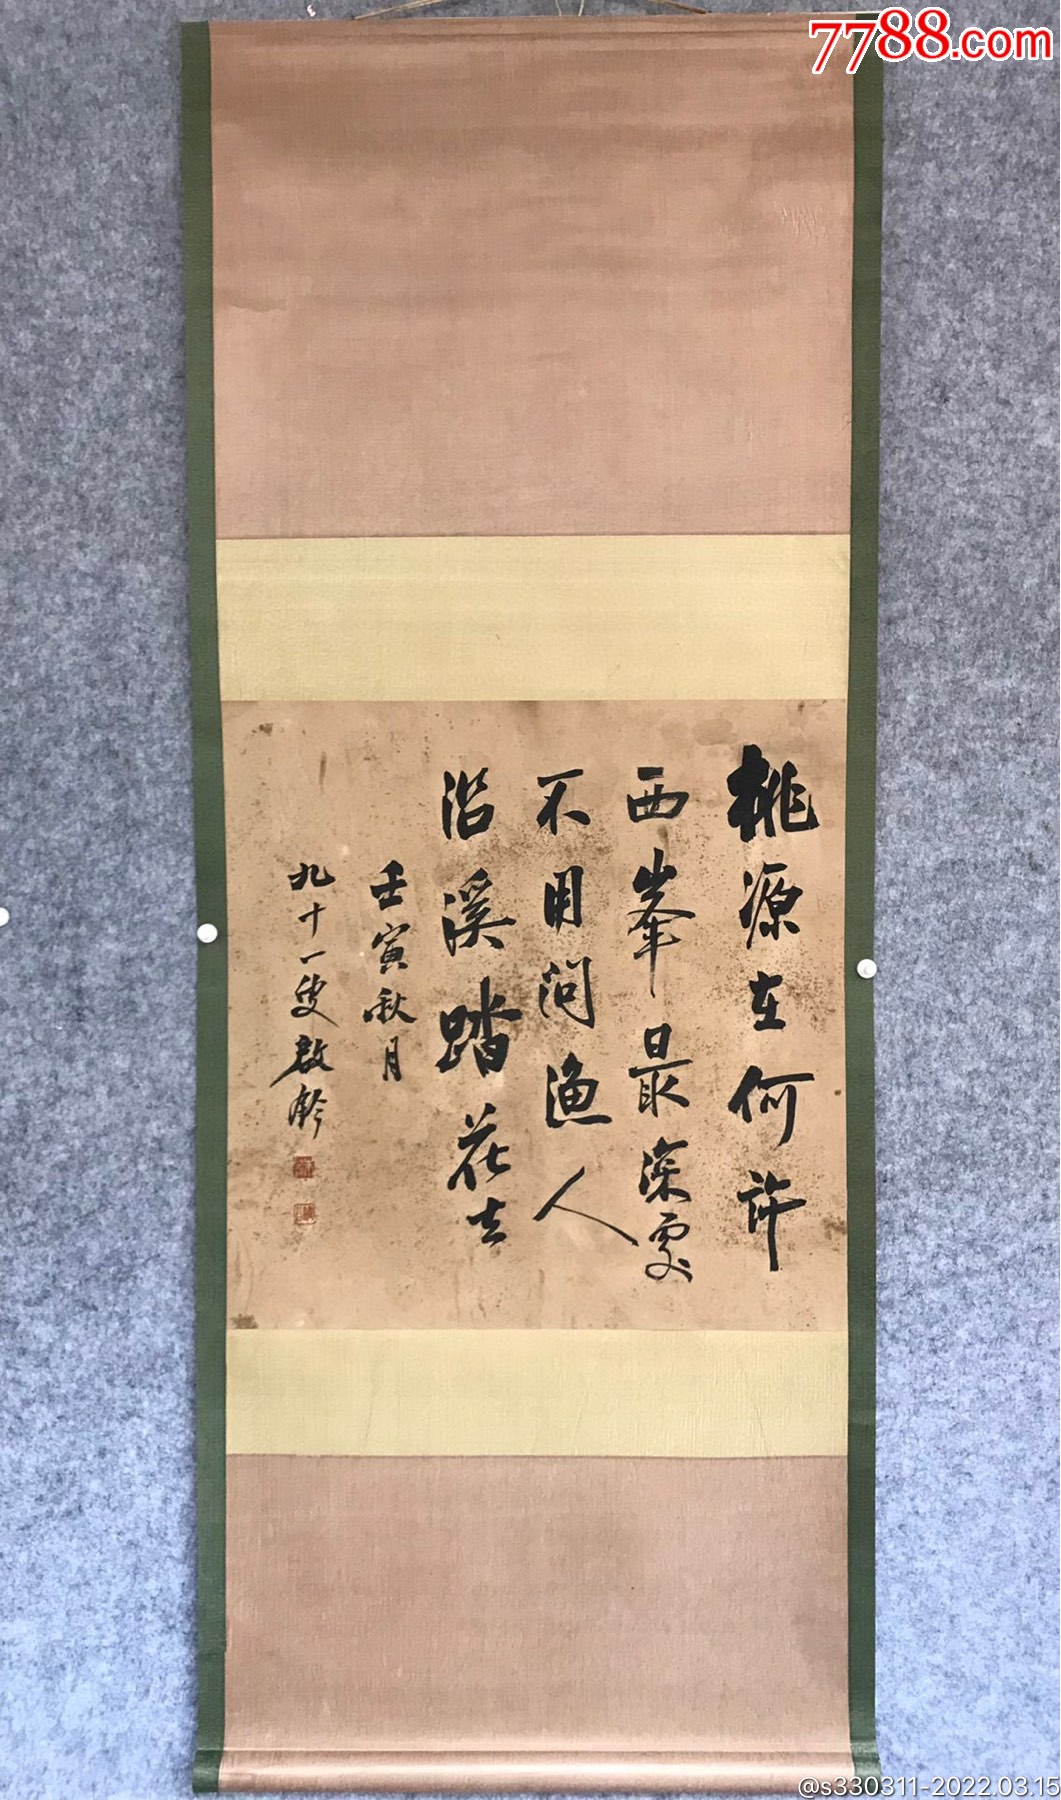 7788.com
桃源在何許
西峯最深處
不用問漁人
沿溪踏花去
壬寅秋月
九十一叟啟齡
@s330311-2022.03.15